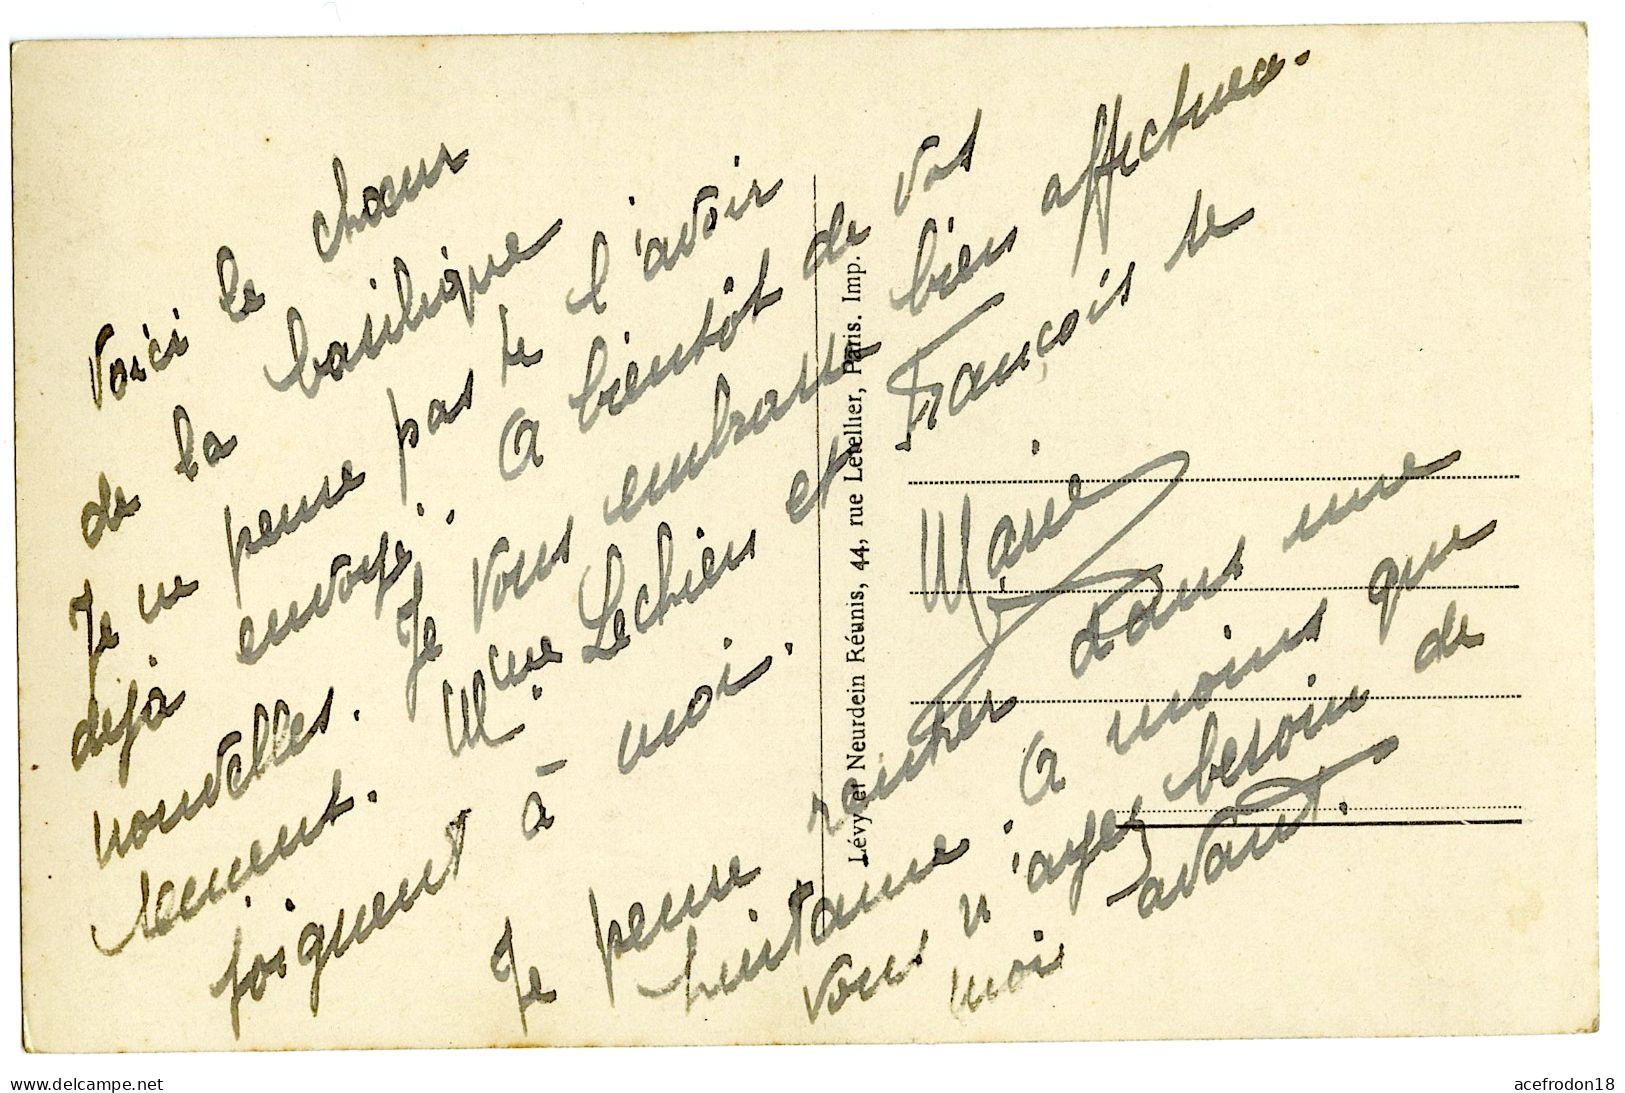 Voici le chœur
de la basilique
Je ne pense pas te l'avoir
déjà envoyé. A bientôt de vos
nouvelles. Je vous embrasse bien affectueu-
sement. Mme Lechien et François se
joignent à moi.
Marie
Je pense rentrer dans une
huitaine. A moins que
vous n'ayez besoin de
moi avant.
Lévy et Neurdein Réunis, 44, rue Letellier, Paris. Imp.
www.delcampe.net
acefrodon18